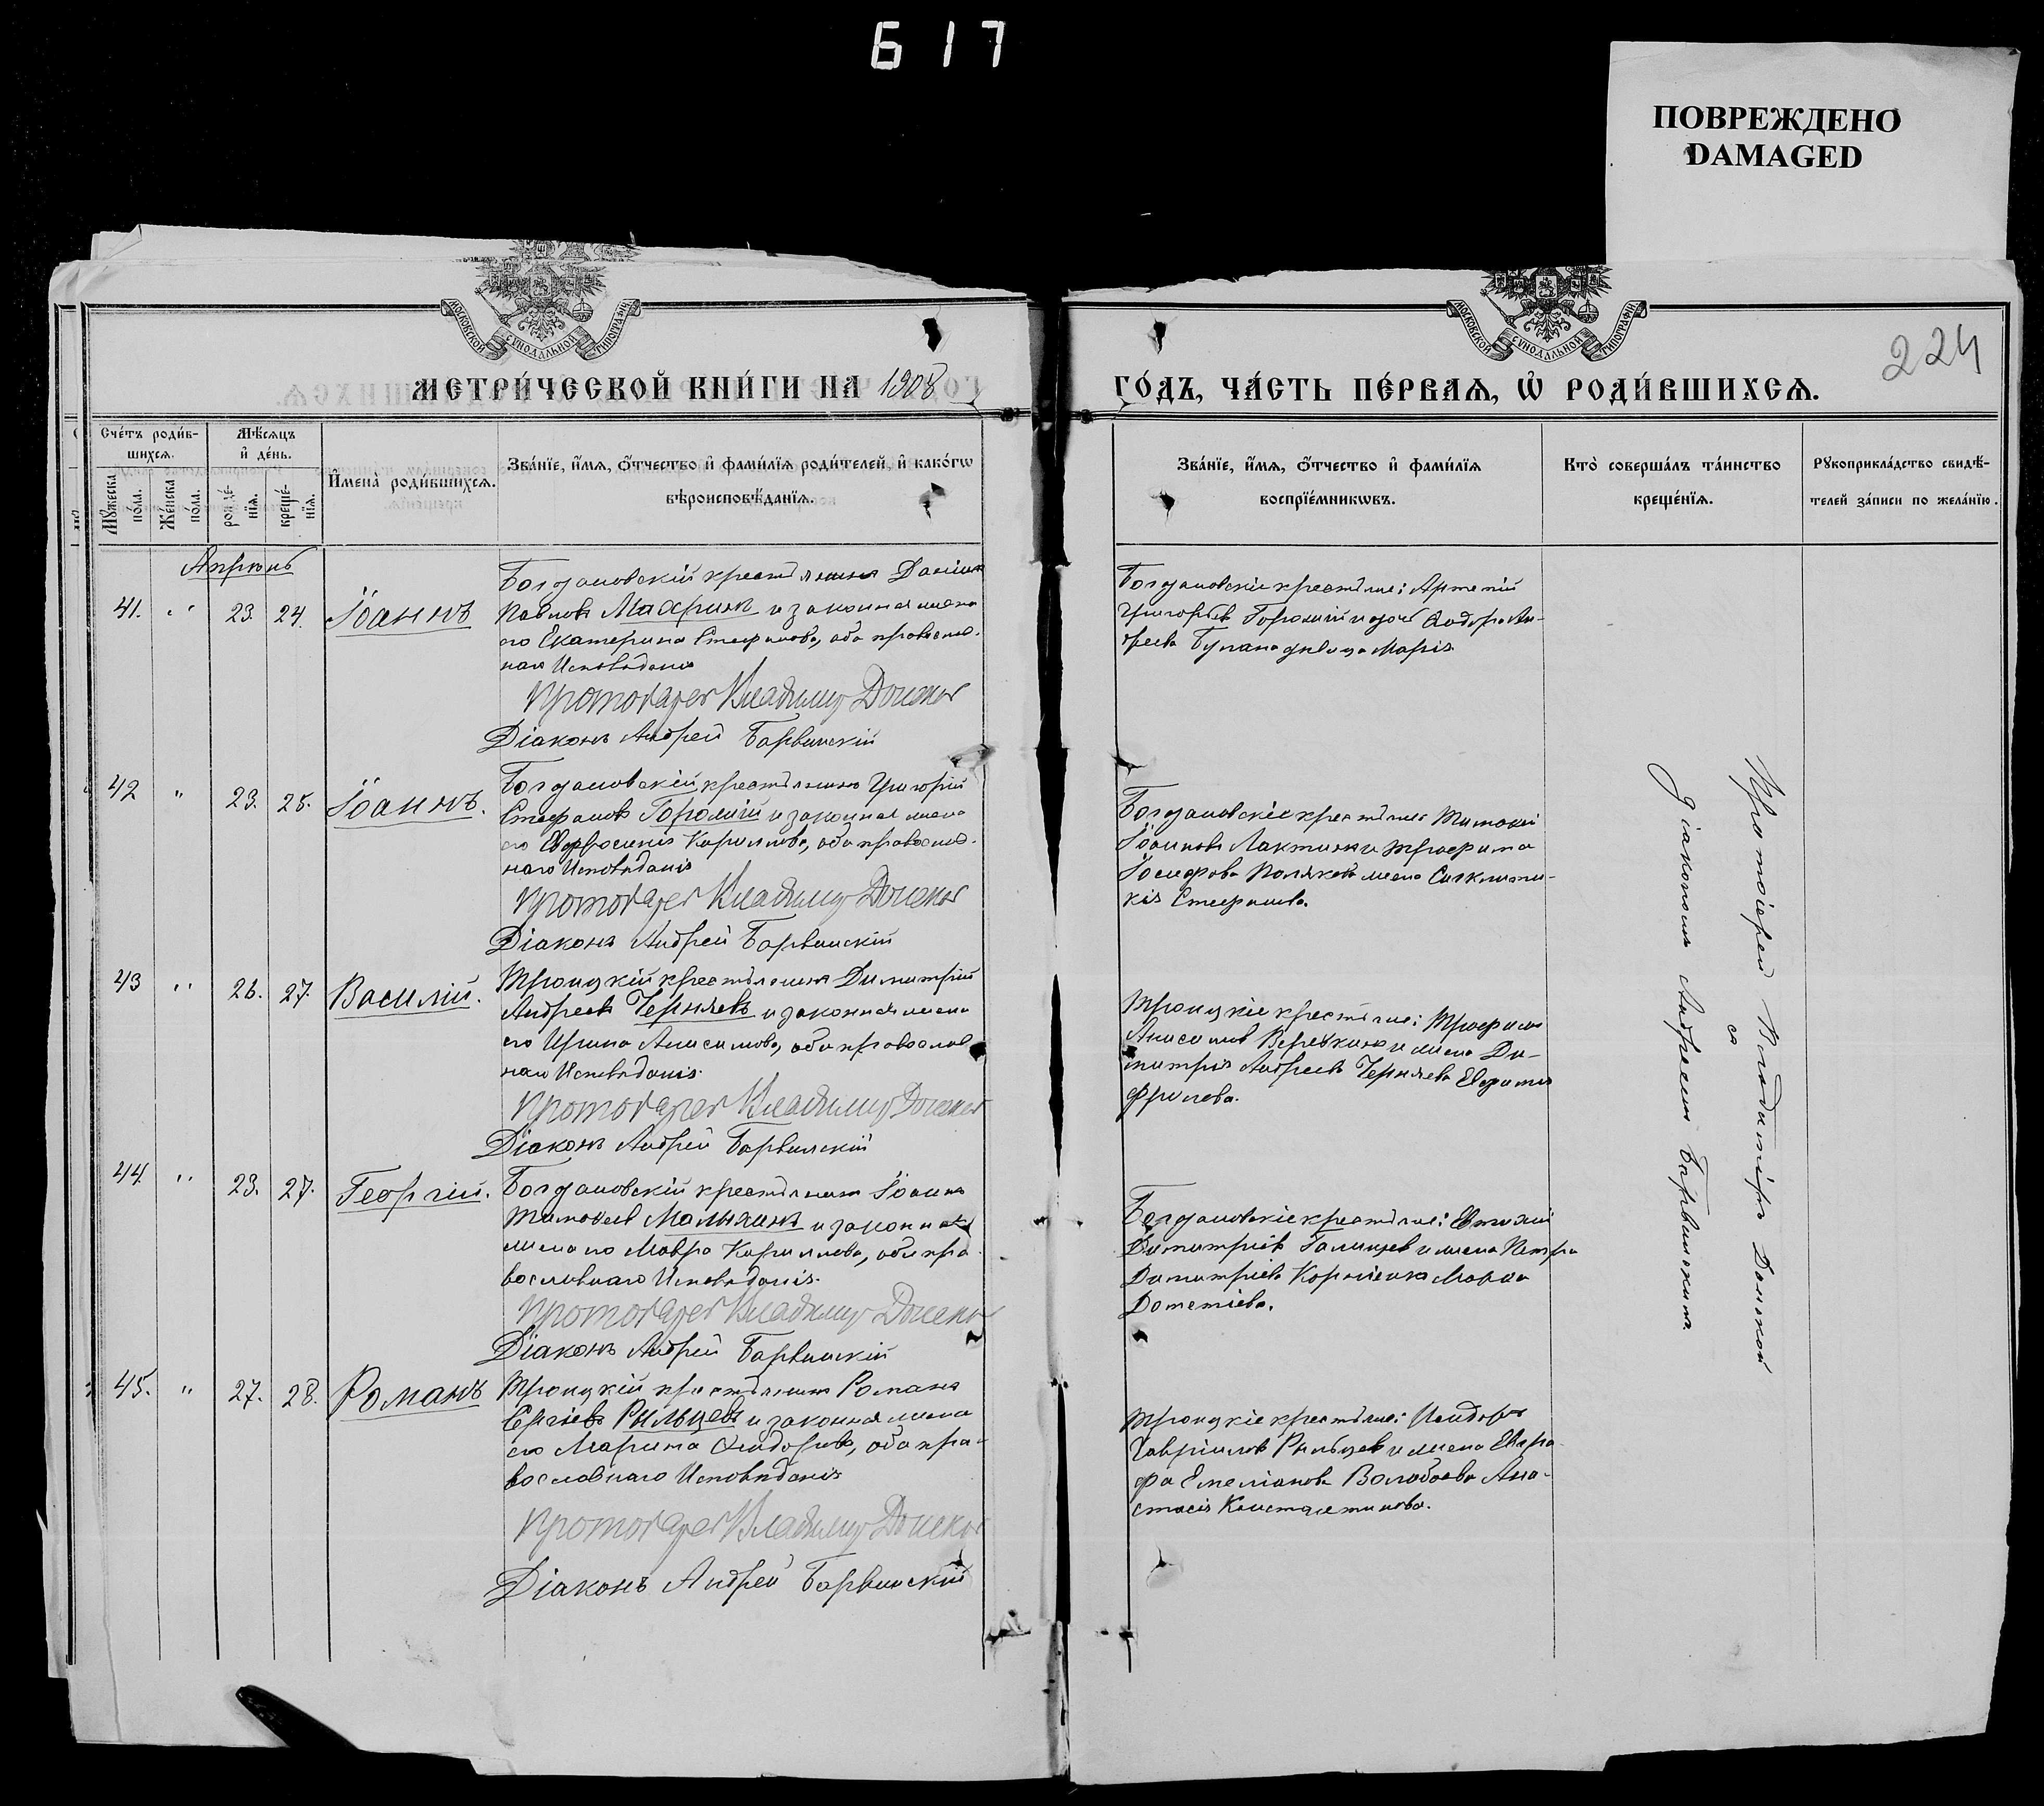 617
ПОВРЕЖДЕНО
DAMAGED
МОСКОВСКОЙ СѴНОДАЛЬНОЙ ТИПОГРАФІИ
МОСКОВСКОЙ СѴНОДАЛЬНОЙ ТИПОГРАФІИ
224
МЕТРИ́ЧЕСКОЙ КНИ́ГИ НА 1908
ГО́ДЪ, ЧА́СТЬ ПЕ́РВАѦ, Ѡ҆ РОДИ́ВШИХСѦ.
Сче́тъ роди́в-
шихсѧ.
Мѣ́сѧцъ
и҆ де́нь.
Мꙋ́жеска по́ла.
Же́нска по́ла.
рожде́-
нїѧ.
креще́-
нїѧ.
И҆мена̀ роди́вшихсѧ.
Зва́нїе, и҆́мѧ, ѻ҆́тчество и҆ фами́лїѧ роди́телей, и҆ како́гѡ
вѣроисповѣ́данїѧ.
Зва́нїе, и҆́мѧ, ѻ҆́тчество и҆ фами́лїѧ
воспрїе́мникѡвъ.
Кто̀ соверша́лъ та́инство
креще́нїѧ.
Рꙋкоприкла́дство свидѣ́-
телей за́писи по жела́нїю.
Апрѣль
41. " 23. 24. Іоаннъ
Богдановскій крестьянинъ Даніилъ
Павловъ Махринъ и законная жена
его Екатерина Стефанова, оба православ-
наго Исповѣданія
Протоіерей Владимиръ Донской
Діаконъ Андрей Барвинскій
Богдановскіе крестьяне: Артемій
Григорьевъ Горолий и дочь Ѳедора Ан-
дреева девица Марія
42 " 23. 25. Іоаннъ.
Богдановскій крестьянинъ Григорій
Стефановъ Горолий и законная жена
его Евфросинія Кириллова, оба православ-
наго Исповѣданія
Протоіерей Владимиръ Донской
Діаконъ Андрей Барвинскій
Богдановскіе крестьяне Тимофей
Іоанновъ Лактинъ и Трофима
Іосифова Полякова жена Синклити-
кія Стефанова.
43 " 26. 27. Василій.
Троицкій крестьянинъ Димитрій
Андреевъ Черняевъ и законная жена
его Ирина Анисимова, оба православ
наго Исповѣданія.
Протоіерей Владимиръ Донской
Діаконъ Андрей Барвинскій
Троицкіе крестьяне: Трофимъ
Анисимовъ Веревкинъ и жена Ди-
митрія Андреева Черняева Евфимія
Фролова.
44. " 23. 27. Георгій.
Богдановскій крестьянинъ Іоаннъ
Тимофеевъ Малыхинъ и законная
жена его Мавра Кириллова, оба пра
вославнаго Исповѣданія.
Протоіерей Владимиръ Донской
Діаконъ Андрей Барвинскій
Богдановскіе крестьяне: Евтихій
Димитріевъ Галицевъ и жена Петра
Димитріева Корніенка Марѳа
45. " 27. 28. Романъ
Троицкій крестьянинъ Романъ
Сергіевъ Рыльцевъ и законная жена
его Марина Ѳеодорова, оба пра-
вославнаго Исповѣданія
Протоіерей Владимиръ Донской
Діаконъ Андрей Барвинскій
Троицкіе крестьяне: Исидоръ
Гавріиловъ Рыльцевъ и жена Евгра-
фа Емеліанова Волобоева Ана-
стасія Константинова.
Протоіерей Владиміръ Донской
съ
діакономъ Андреемъ Барвинскимъ.